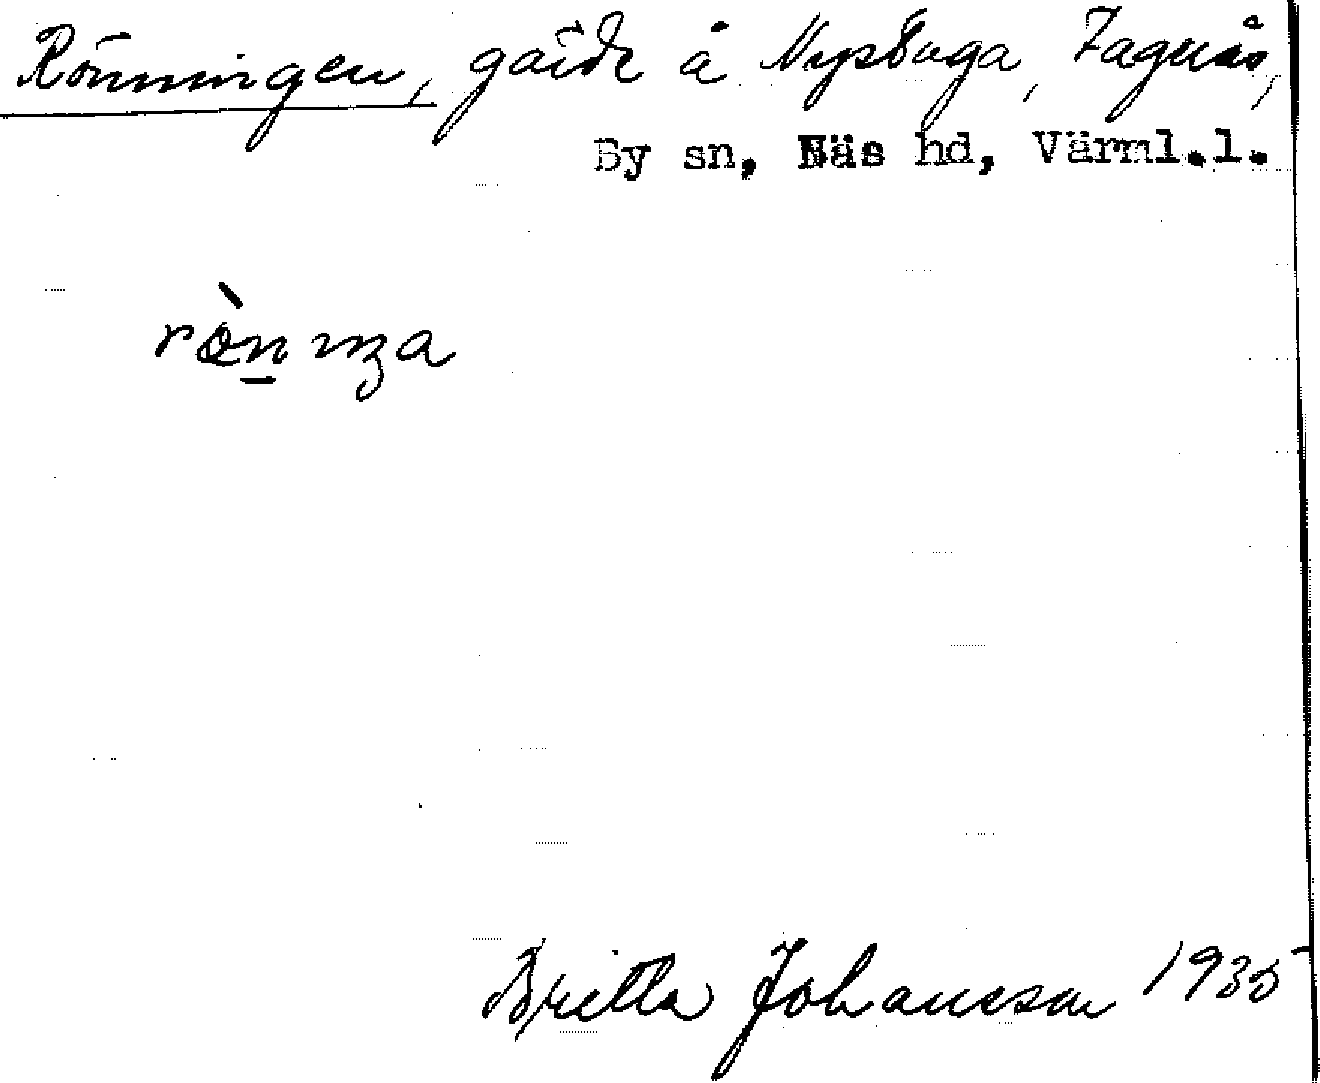 Rönningen, gärde å Nystuga, Fagerås,
By sn, Näs hd, Värml.l.
Britta Johansson 1935